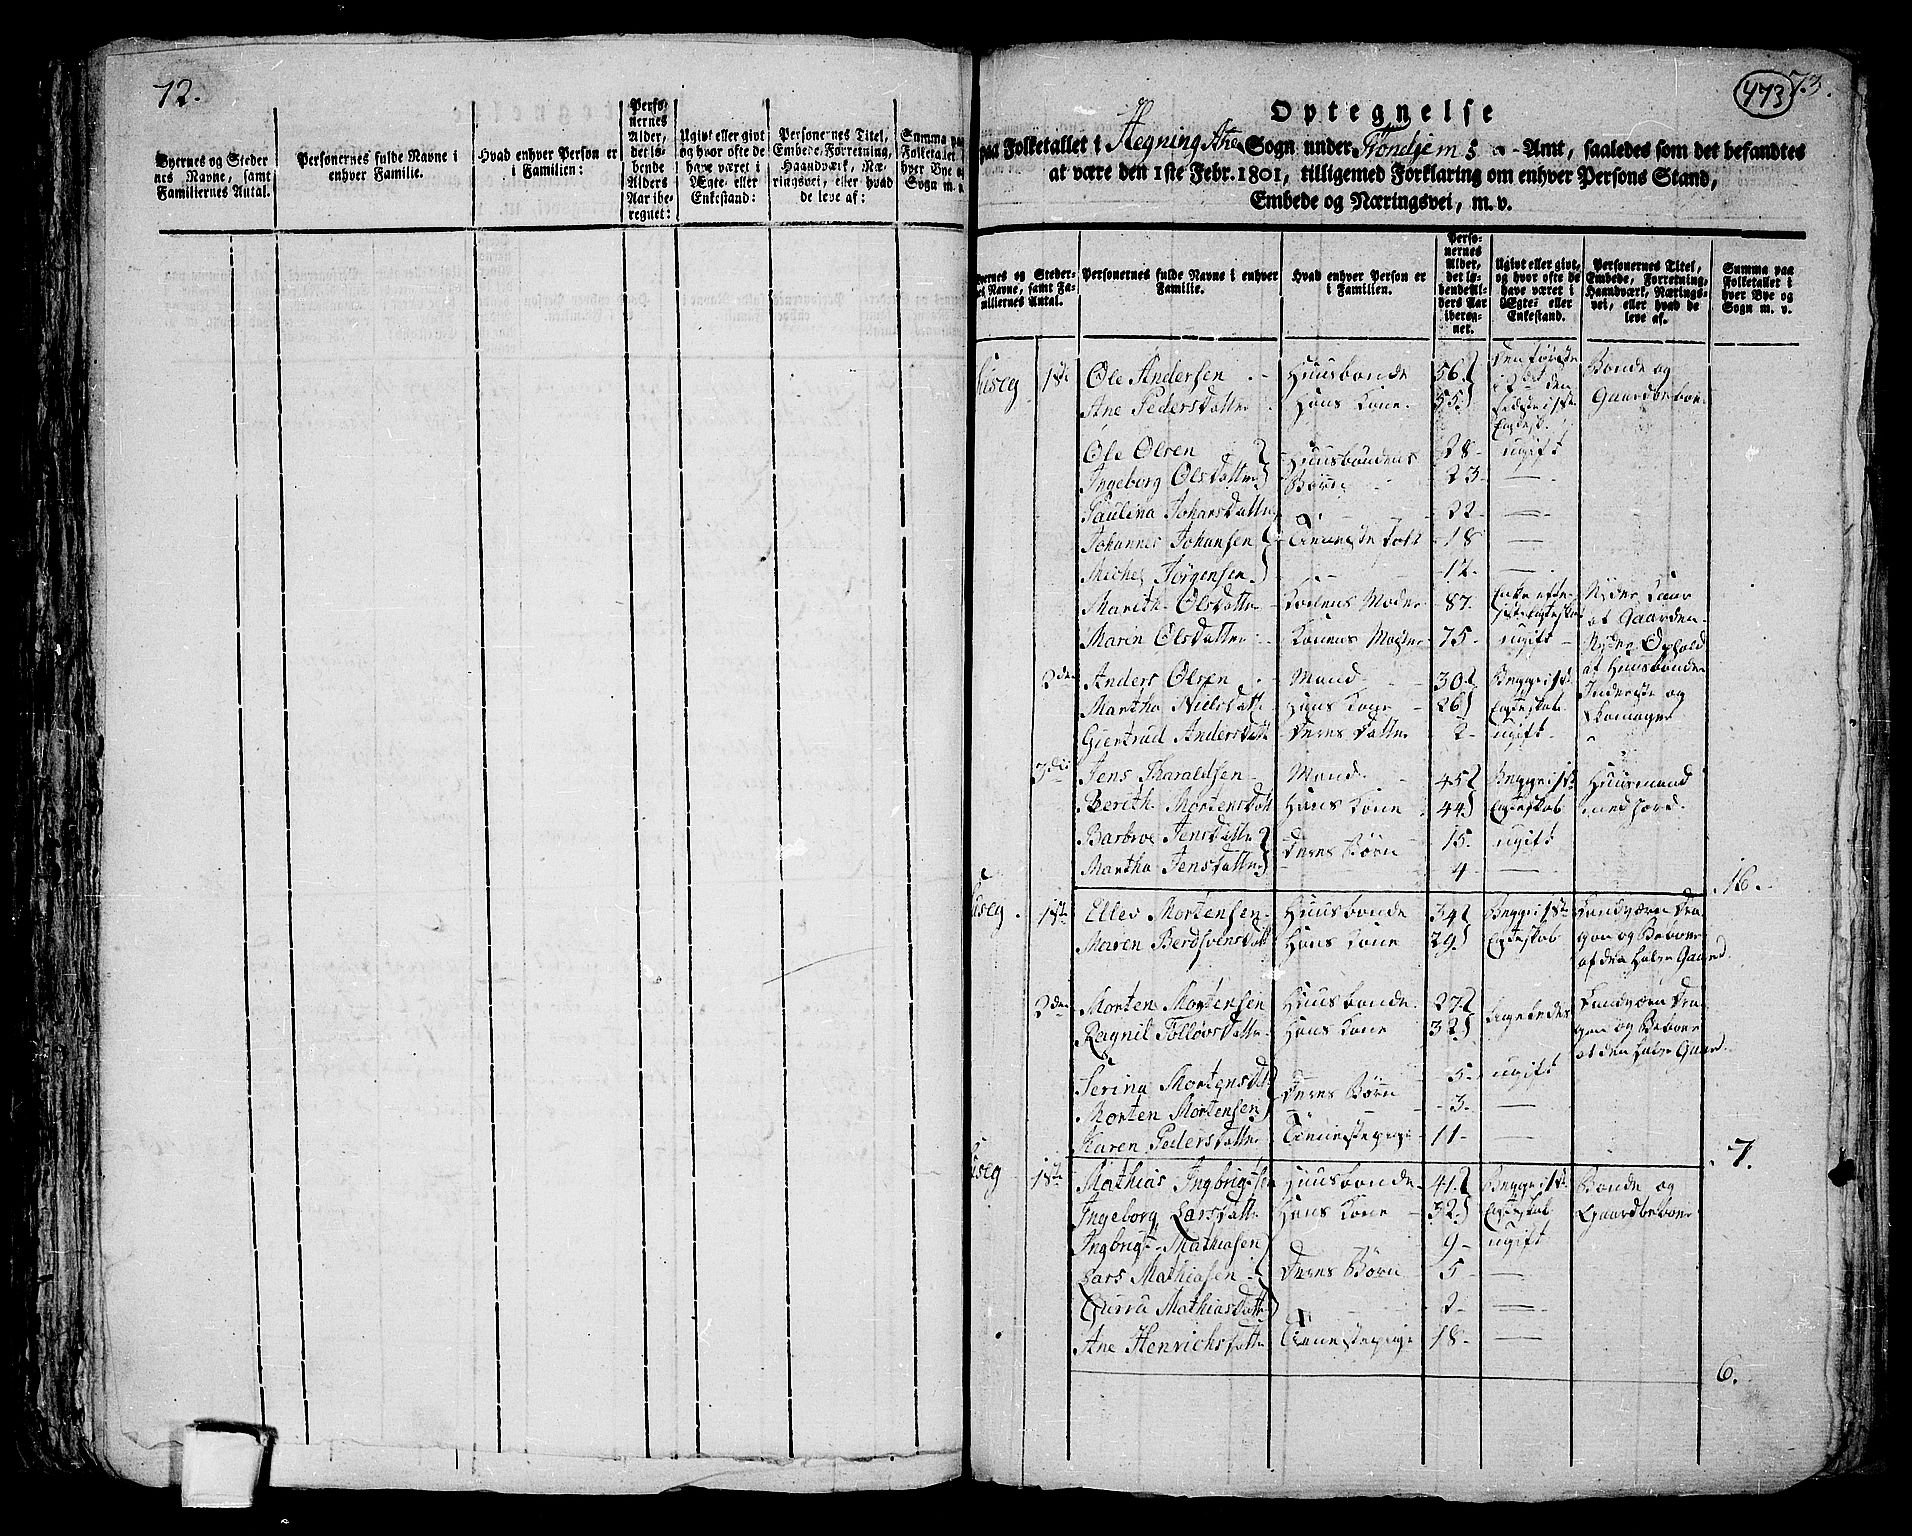 72.
Byernes og Steder
nes Navne, samt
Familiernes Antal.
Personernes fulde Navne i
enhver Familie.
Hvad enhver Person er
i Familien:
Perso-
nernes
Alder,
det lø-
bende
Alders
Aar ibe-
regnet:
Ugivt eller givt
og hvor ofte de
have været i
Ægte- eller
Enkestand:
Personernes Titel,
Embede, Forretning,
Haandværk, Næ-
ringsvei, eller hvad
de leve af:
Summa paa
Folketallet
hver Bye o
Sogn m. v.
473
73.
Optegnelse
paa Folketallet i Hegning Sogn under Trondjems Amt, saaledes som det befandtes
at være den 1ste Febr. 1801, tilligemed Forklaring om enhver Persons Stand,
Embede og Næringsvei, m. v.
Byernes og Steder-
s Navne, samt Fa-
miliernes Antal.
Personernes fulde Navne i enhver
Familie.
Hvad enhver Person er
i Familien.
Perso-
nernes
Alder,
det lø-
bende Al-
ders Aar
ibereg-
net.
Ugivt eller givt,
og hvor ofte de
have været i
Ægte- eller
Enkestand.
Personernes Titel,
Embede, Forretning,
Haandværk, Nærings-
vei, eller hvad de
leve af.
Summa paa
Folketallet i
hver Bye og
Sogn m. v.
1ste Ole Andersen Huusbonde 56 den første Bonde og
Ane Pedersdatter Hans Kone 55 Gaardbeboer
Ole Olsen Huusbondens 28 ugift
Ingeborg Olsdatter Børn 23 —
Paulina Johansdatter 22 —
Johannes Johansen Tienestefolk 18 —
Michel Jørgensen 12 —
Marith Olsdatter Konens Moder 87 Nyder Kaar
af Gaarden
Marin Olsdatter Konens Moster 75 ugift Nyder Ophold
af Huusbonden
2den Anders Olsen Mand 30 Begge i 1ste Inderste og
Martha Nielsdatter Hans Kone 26 Egteskab Skomager
Giertrud Andersdatter Deres Datter 2 ugift
3die Jens Tharaldsen Mand 45 Begge i 1ste Huusmand
Berith Mortensdatt Hans Kone 44 Egteskab med Jord
Barbroe Jensdatter Deres Børn 15 ugift
Martha Jensdatter 4 —
16.
1ste Ellev Mortensen Huusbonde 34 Begge i 1ste Landværn Dra
Maren Berdsvensdatt Hans Kone 29 Egteskab gon og Beboer
af den halve Gaard
2den Morten Mortensen Huusbonde 27 Ligeledes Landværn Dra
Ragnil Folløvsdatter Hans Kone 32 gon og Beboer
af den halve Gaard
Serina Mortensdat Deres Børn 5 ugift
Morten Mortensen 3 —
Karen Pedersdatter Tienestepige 11 —
7.
1ste Mathias Ingbrigtsen Huusbonde 41 Begge i 1ste Bonde og
Ingeborg Larsdatter Hans Kone 32 Egteskab Gaardbeboer
Ingbrigt Mathiasen 9 ugift
Lars Mathiasen Deres Børn 5 —
Gurru Mathiasdatt 2 —
Ane Henrichsdatter Tienestepige 18 —
6.